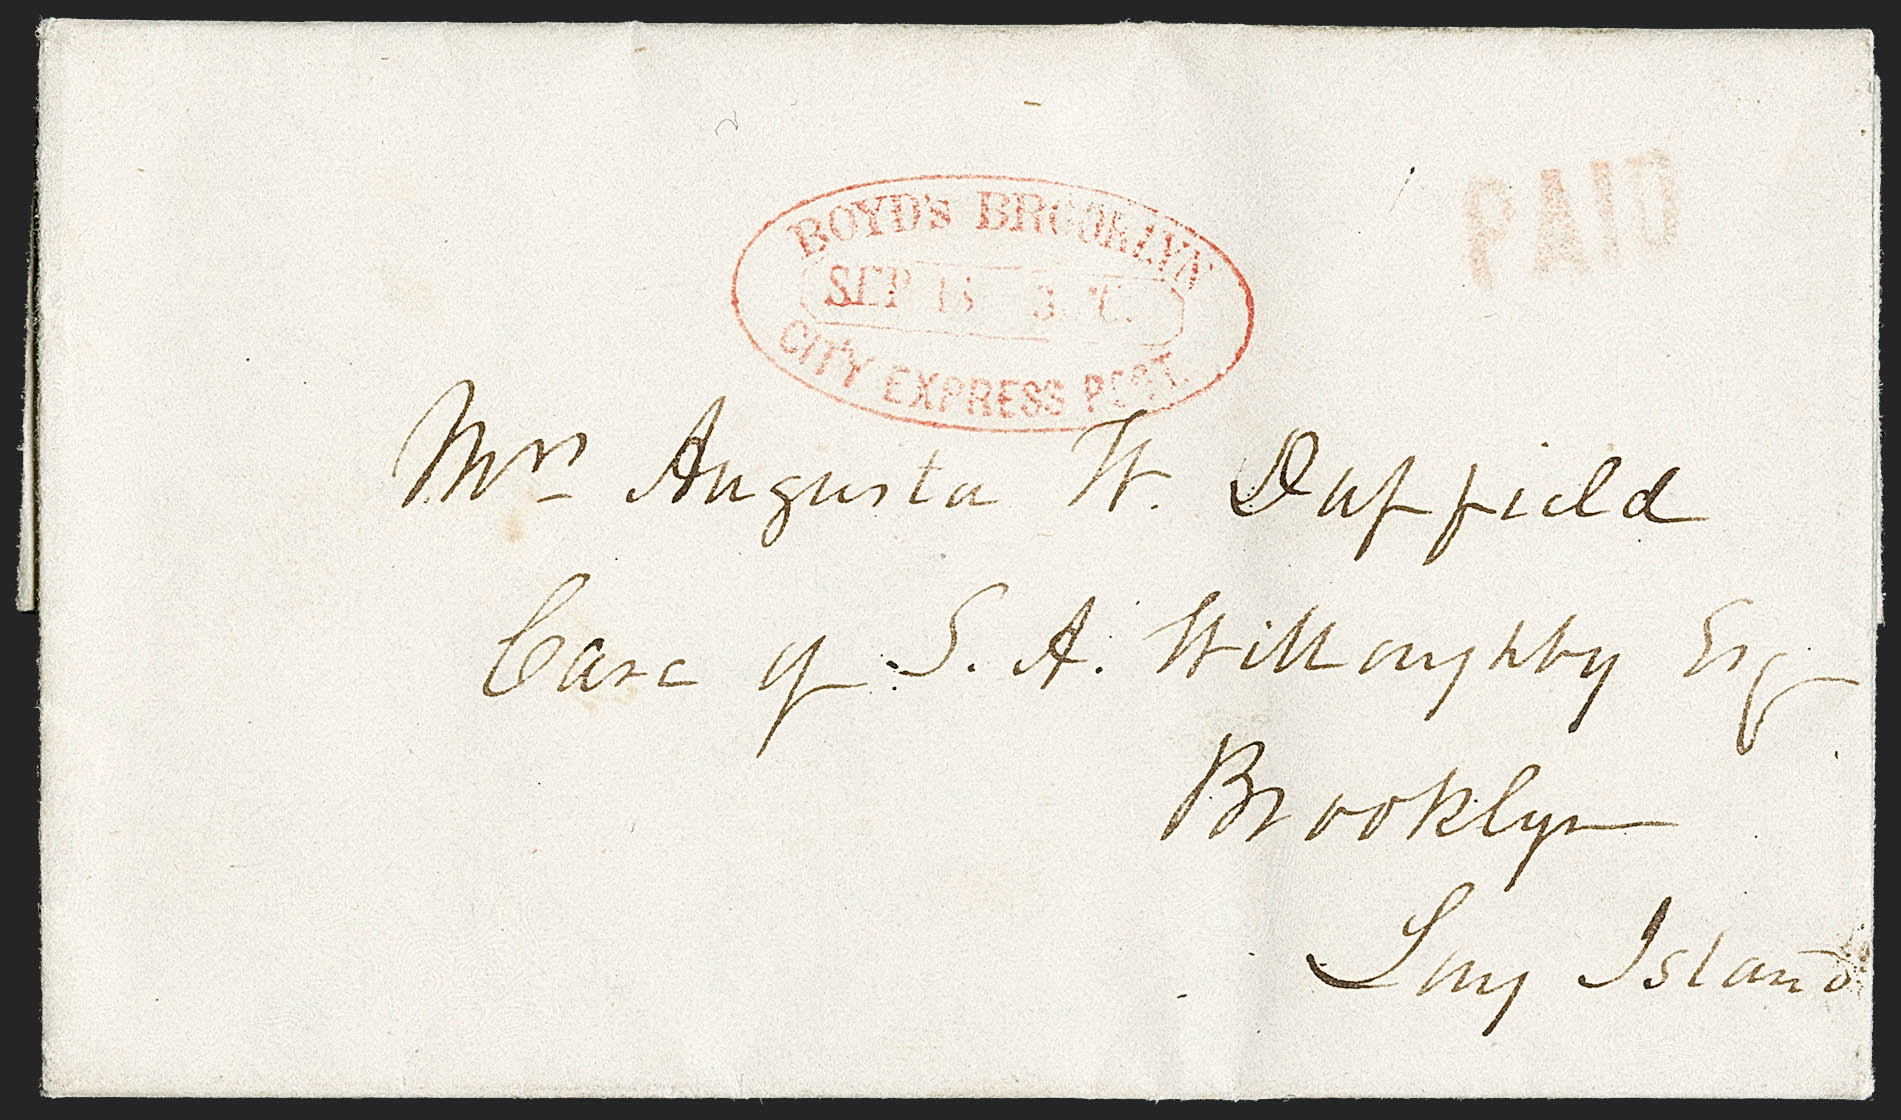 BOYD'S BROOKLYN
SEP 3
CITY EXPRESS POST.
PAID
Mrs Augusta W. Duffield
Care of S. A. Willoughby Esq
Brooklyn
Long Island